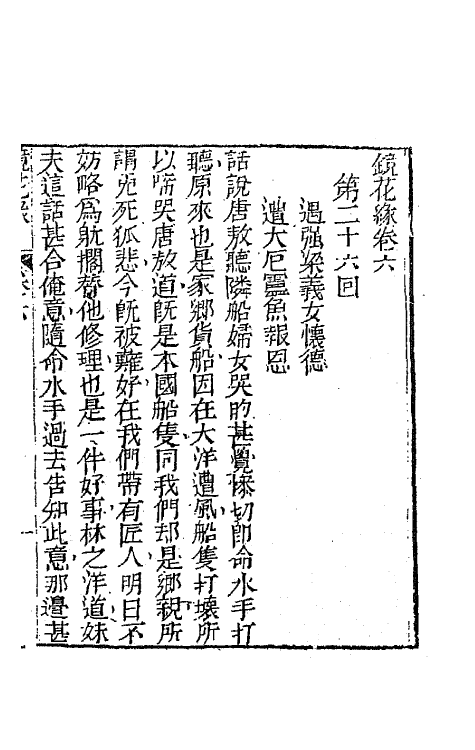 鏡花緣卷六
第二十六回
遇强梁義女懷德
遭大厄靈魚報恩
話說唐敖聽隣船婦女哭的甚覺慘切即命水手打
聽原來也是家鄉貨船因在大洋遭風船隻打壞所
以啼哭唐敖道既是本國船隻同我們却是鄉親所
謂兎死狐悲今既被難好在我們帶有匠人明日不
妨略為躭擱替他修理也是一件好事林之洋道妹
夫這話甚合俺意隨命水手過去告知此意那邉甚